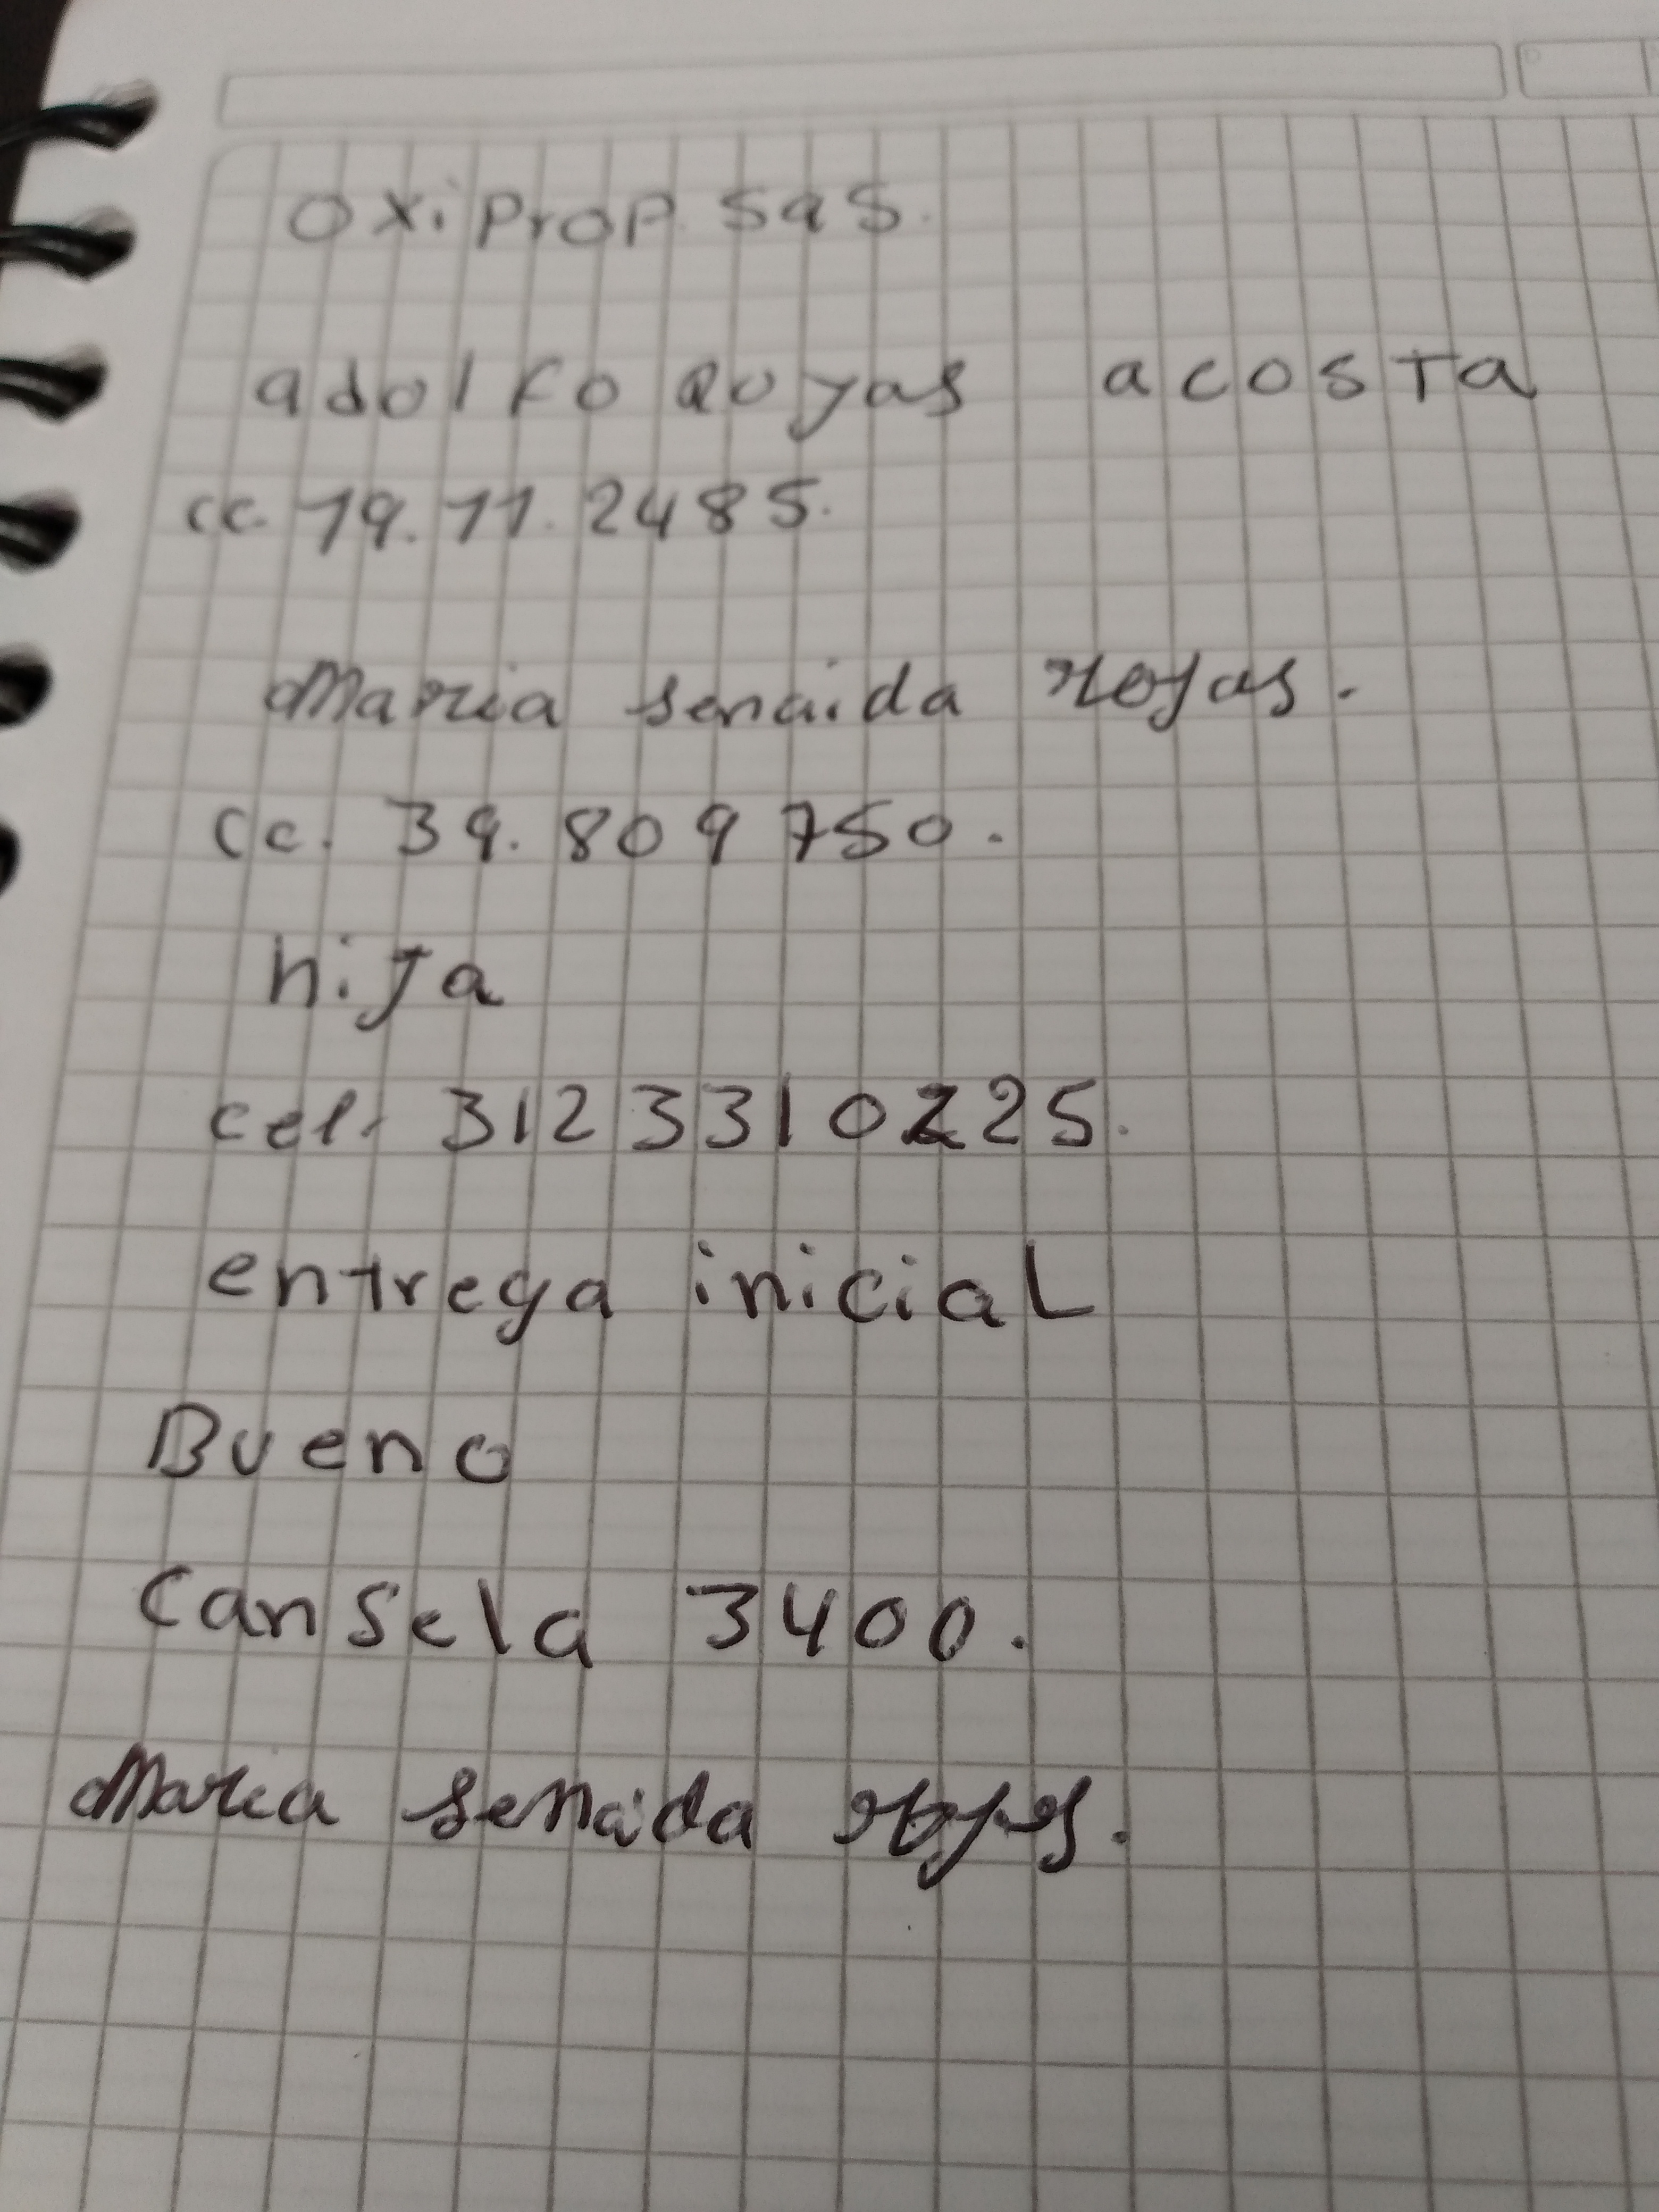 oxiprop. sas.
adolfo Royas acosta
cc. 19.11.2485.
Maria Senaida rojas.
cc. 39.809 750.
hija
cel. 3123310225.
entrega inicial
Bueno
Cansela 3400.
Maria Senaida rojas.